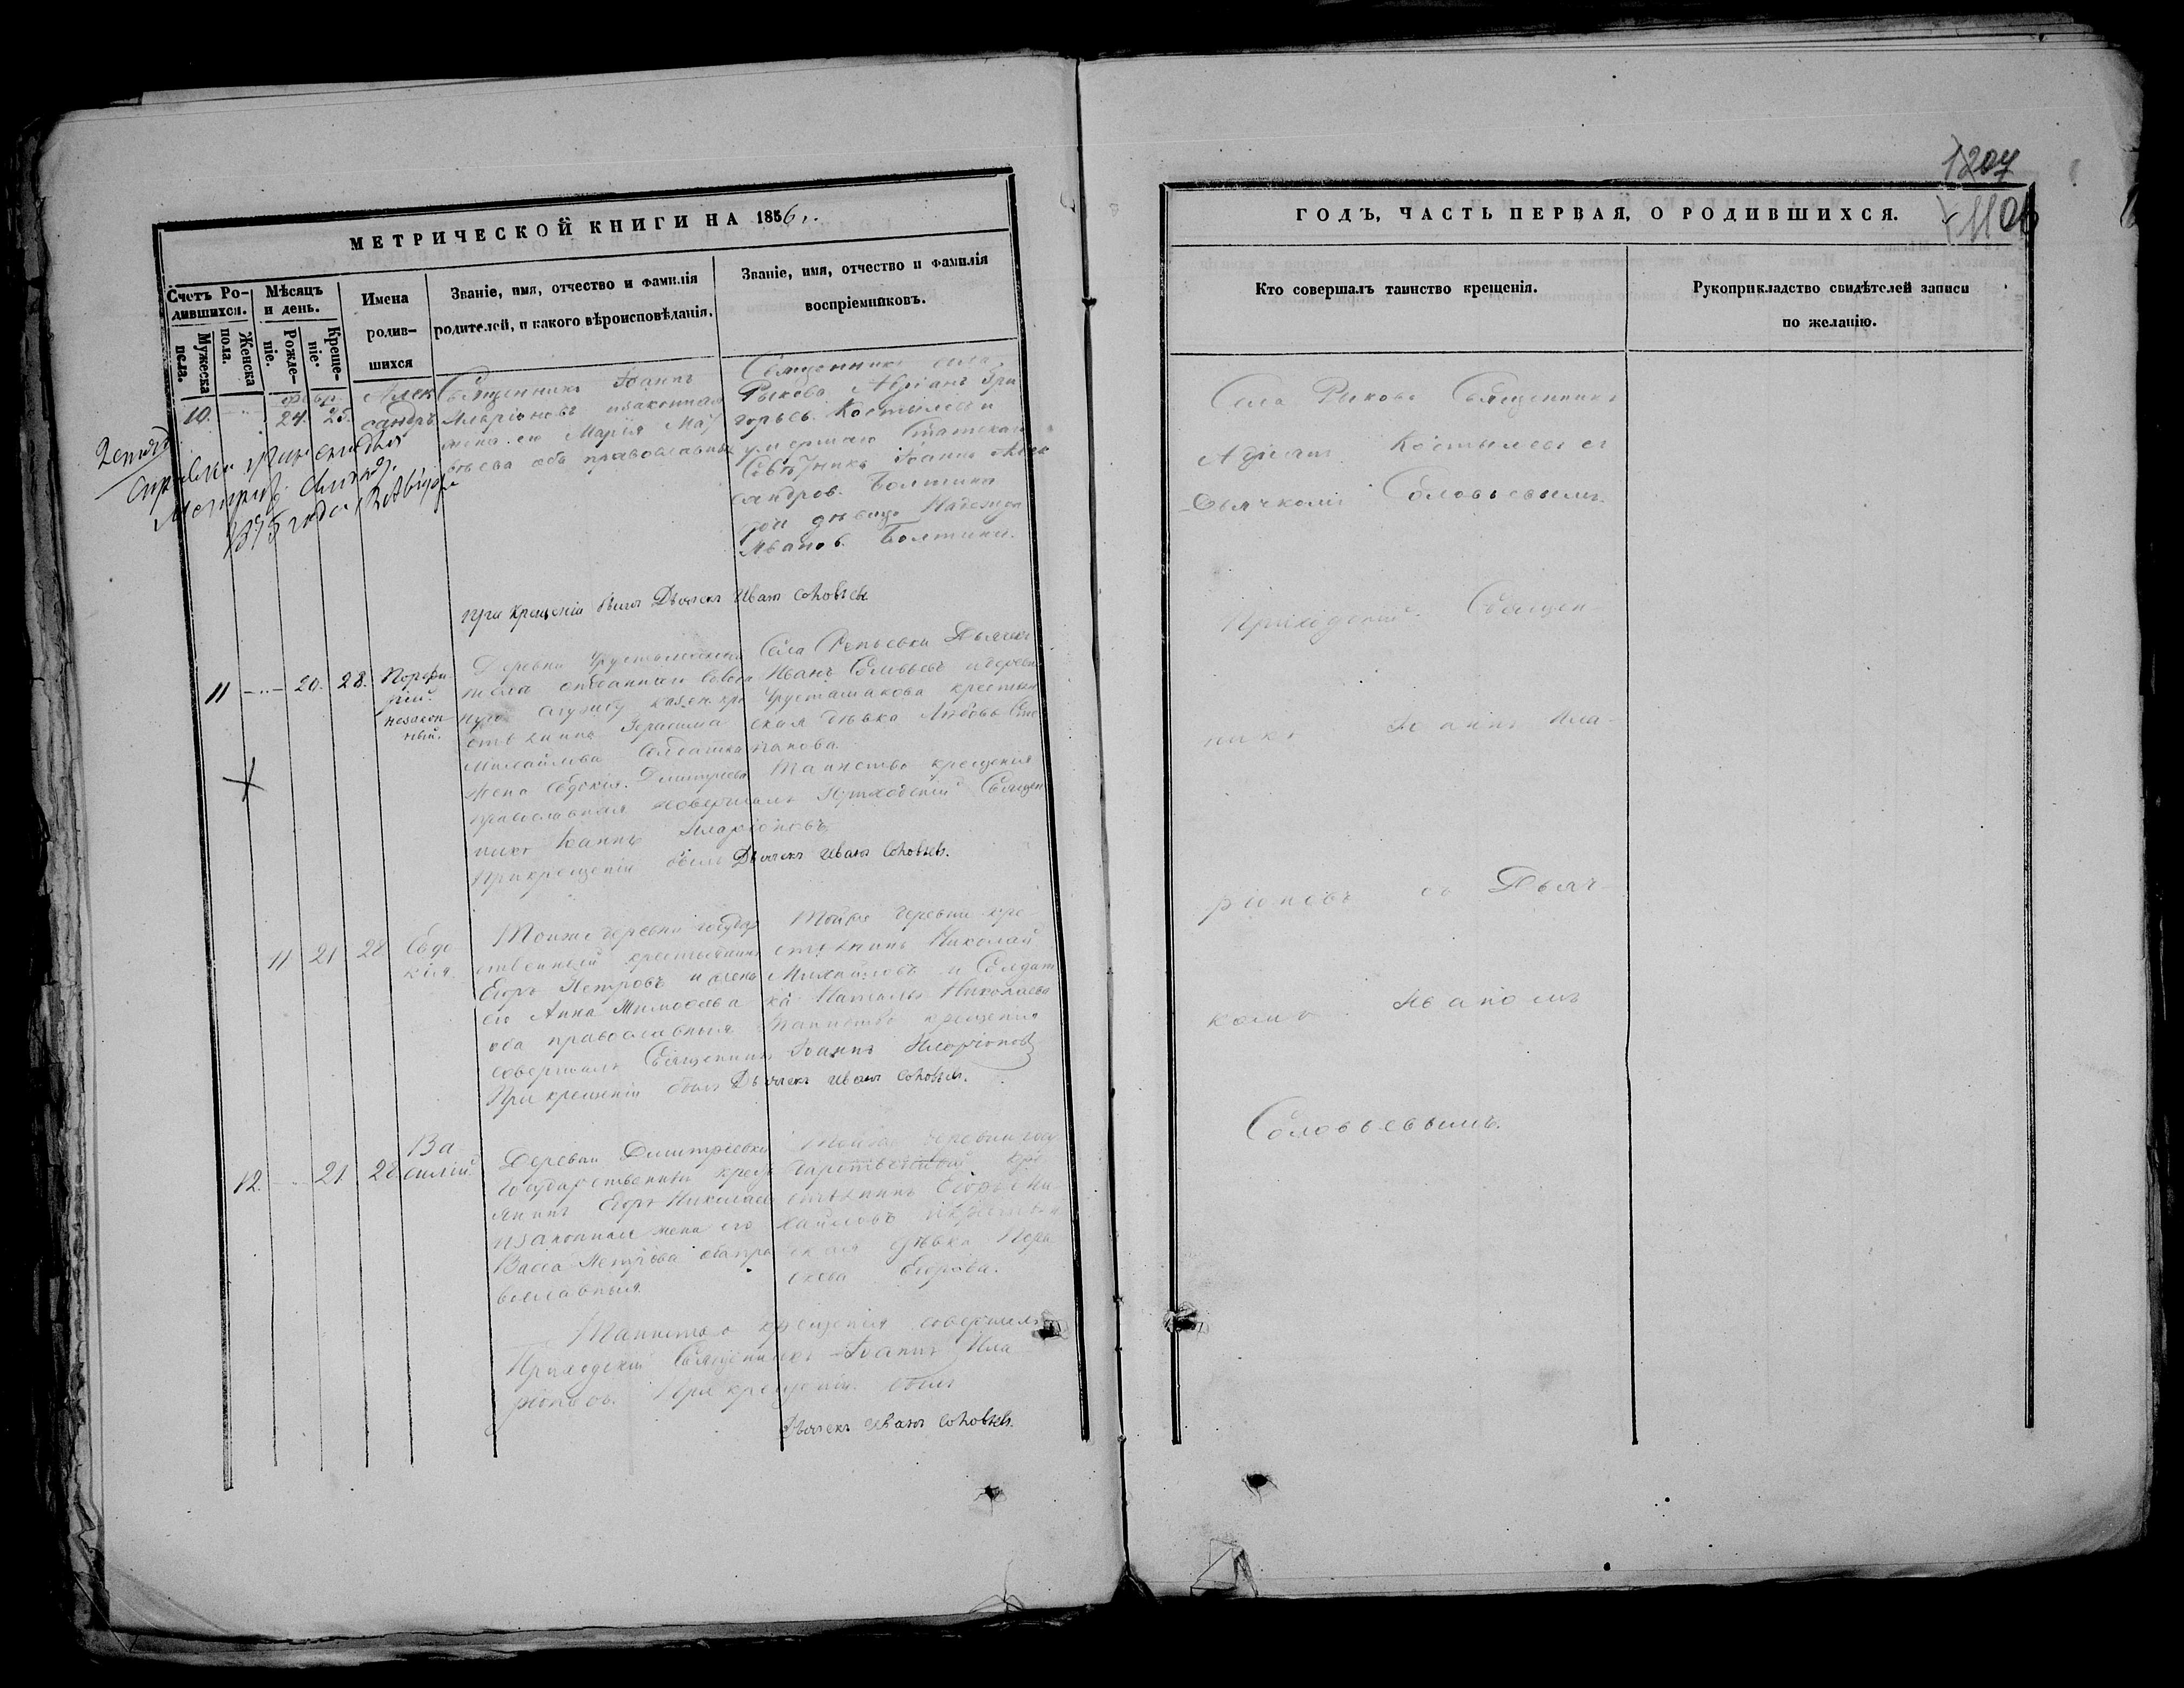 МЕТРИЧЕСКОЙ КНИГИ НА 1856 г.
Счетъ Ро-
дившихся.
Мужеска
пола.
Женска
пола.
Мѣсяцъ
и день.
Рожде-
ніе.
Креще-
ніе.
Имена
родив-
шихся
Званіе, имя, отчество и фамилія
родителей, и какого вѣроисповѣданія.
Званіе, имя, отчество и фамилія
воспріемниковъ.
Февр.
10. 24. 25.
Алек
сандръ
Священникъ Іоаннъ
Иларіоновъ изаконная
жена его Марія Мат
вѣева оба православные
Священникъ села
Рыкова Адріанъ Гри
горьев. Костылевъ и
умершаго Статскаго
Совѣтника Іоанна Алек
сандров. Болтина
дочь дѣвица Надежда
Иванов. Болтина.
1875 года
При крещеніи былъ Дьячекъ Иванъ Соловьевъ
11 20. 28.
Порфи
рій.
незакон
ный.
Деревни
казен. кре
стьянина Герасима
Михайлова Солдатка
жена Евдокія Димитріева
православная
Села Репьевки Дьячекъ
Иванъ Соловьевъ и деревни
крестьян
ская дѣвка Любовь Сте
панова.
Таинство крещенія
совершалъ Приходскій Священ
никъ Іоаннъ Иларіоновъ
При крещеніи былъ Дьячекъ Иванъ Соловьевъ.
11 21 28
Евдо
кія.
Тойже деревни государ
ственный крестьянинъ
Егоръ Петровъ и жена
его Анна Тимофѣева
оба православныя
Тойже деревни кре
стьянинъ Николай
Михайловъ и Солдат
ка Наталья Николаева
Таинство крещенія
совершалъ Священникъ Іоаннъ Иларіоновъ
При крещеніи былъ Дьячекъ Иванъ Соловьевъ.
12. 21 28
Ва
силій
Деревни Димитріевки
Государственный кресть
янинъ Егоръ Николаевъ
изаконная жена его
Васса Петрова оба пра
вославныя
Тойже деревни госу
дарственный кре
стьянинъ Егоръ Ми
хайловъ и крестьян
ская дѣвка Пора
скева Егорова.
Таинство крещенія совершалъ
Приходскій Священникъ Іоаннъ Ила
ріоновъ. При крещеніи былъ
Дьячекъ Иванъ Соловьевъ.
1207
1106
ГОДЪ, ЧАСТЬ ПЕРВАЯ, О РОДИВШИХСЯ.
Кто совершалъ таинство крещенія.
Рукоприкладство свидѣтелей записи
по желанію.
Села Рыкова Священникъ
Адріанъ Костылевъ съ
Дьячкомъ Соловьевымъ.
Приходскій Священ
никъ Іоаннъ Ила
ріоновъ съ Дьяч
комъ Иваномъ
Соловьевымъ.